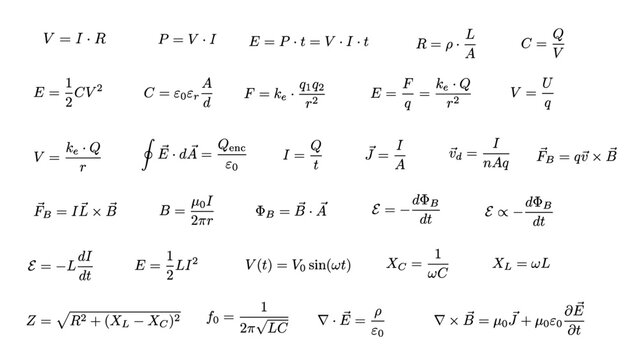 V = I · R   P = V · I   E = P · t = V · I · t   R = ρ · L/A   C = Q/V
E = 1/2 CV²   C = ε₀εᵣ A/d   F = kₑ · q₁q₂/r²   E = F/q = kₑ · Q/r²   V = U/q
V = kₑ · Q/r   ∮ E⃗ · dA⃗ = Q_enc/ε₀   I = Q/t   J⃗ = I/A   v⃗_d = I/nAq   F⃗_B = qv⃗ × B⃗
F⃗_B = IL⃗ × B⃗   B = μ₀I/2πr   Φ_B = B⃗ · A⃗   ℰ = −dΦ_B/dt   ℰ ∝ −dΦ_B/dt
ℰ = −L dI/dt   E = 1/2 LI²   V(t) = V₀ sin(ωt)   X_C = 1/ωC   X_L = ωL
Z = √(R² + (X_L − X_C)²)   f₀ = 1/2π√LC   ∇ · E⃗ = ρ/ε₀   ∇ × B⃗ = μ₀J⃗ + μ₀ε₀ ∂E⃗/∂t